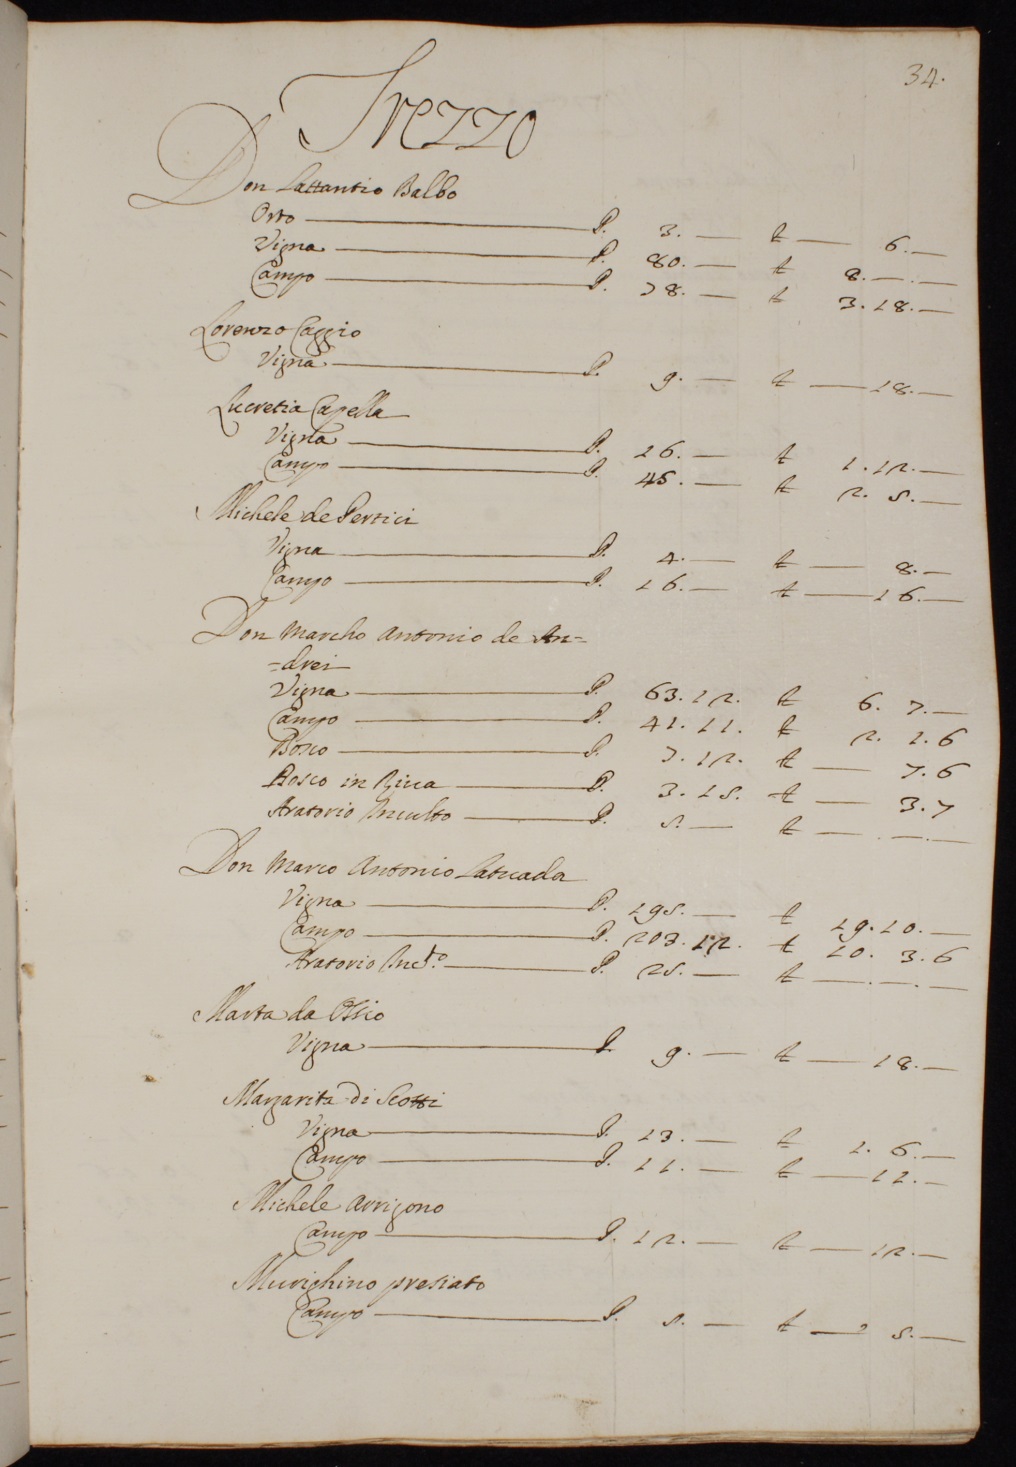 34.
Trezzo
Don Lattantio Balbo
Orto — P. 3. — £ — 6. —
Vigna — P. 80. — £ 8. — . —
Campo — P. 78. — £ 3. 18. —
Lorenzo Caggio
Vigna — P. 9. — £ — 18. —
Lucretia Capella
Vigna — P. 16. — £ 1. 12. —
Campo — P. 45. — £ 2. 5. —
Michele de Pertici
Vigna — P. 4. — £ — 8. —
Campo — P. 16. — £ — 16. —
Don Marcho Antonio de An=
=drei
Vigna — P. 63. 12. £ 6. 7. —
Campo — P. 41. 11. £ 2. 1. 6
Bosco — P. 7. 12. £ — 7. 6
Bosco in Riva — P. 3. 15. £ — 3. 7
Aratorio Inculto — P. 5. — £ — . — . —
Don Marco Antonio Latuada
Vigna — P. 195. — £ 19. 10. —
Campo — P. 203. 12. £ 10. 3. 6
Aratorio Inc.to — P. 25. — £ — . — . —
Marta da Ossio
Vigna — P. 9. — £ — 18. —
Margarita di Scotti
Vigna — P. 13. — £ 1. 6. —
Campo — P. 11. — £ — 11. —
Michele Arrigono
Campo — P. 12. — £ — 12. —
Murighino presiato
Campo — P. 5. — £ — 5. —